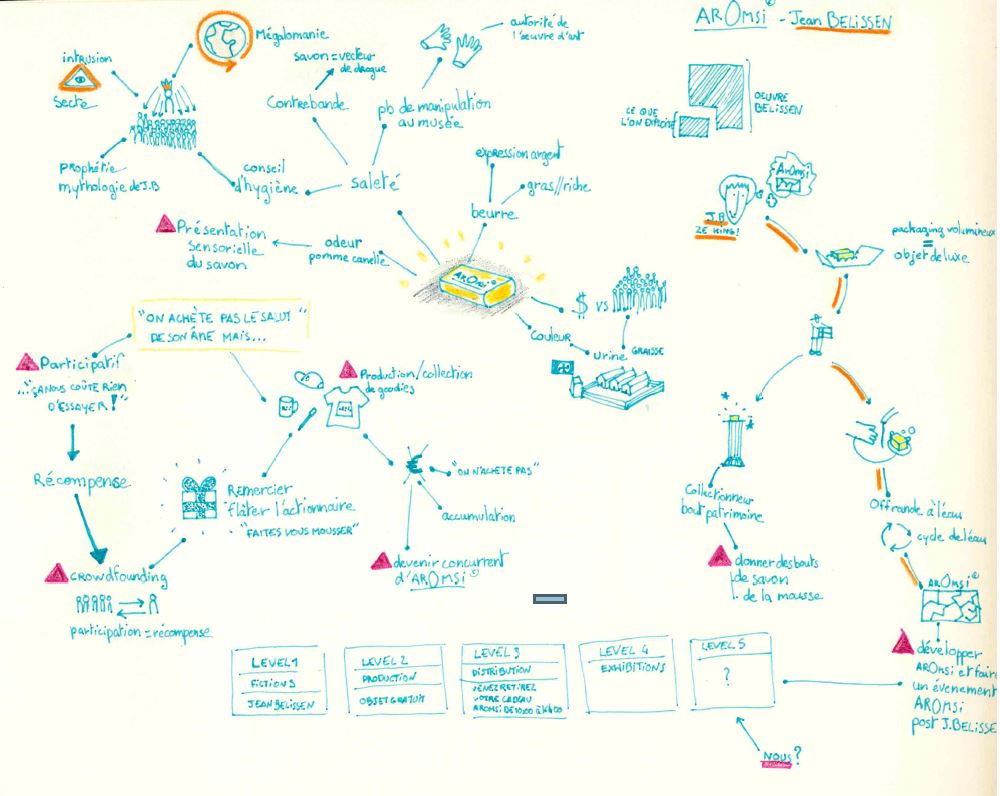 AROmsi© - Jean BELISSEN
intrusion
Secte
Mégalomanie
savon = vecteur
de drogue
Contrebande
autorité de
l'oeuvre d'art
pb de manipulation
au musée
prophétie
mythologie de J.B
conseil
d'hygiène
saleté
expression argent
gras//riche
beurre
Présentation
sensorielle
du savon
odeur
pomme canelle
AROmsi©
$ vs
couleur
urine
GRAISSE
OEUVRE
BELISSEN
CE QUE
L'ON EXPLOITE
AROmsi
J.B
ZE KING!
packaging volumineux
=
objet de luxe
"ON ACHÈTE PAS LE SALUT"
DE SON ÂME MAIS...
Participatif
"...ÇA NOUS COÛTE RIEN
D'ESSAYER!"
Récompense
Production/collection
de goodies
€
"ON N'ACHETE PAS"
accumulation
Remercier
flâter l'actionnaire
"FAITES VOUS MOUSSER"
devenir concurrent
d'AROMSi©
CROWDfounding
participation = récompense
Collectionneur
bout patrimoine
donner des bouts
de savon
de la mousse
Offrande à l'eau
cycle de l'eau
AROmsi©
développer
AROmsi et faire
un évenement
AROMSi
post J.BELISSE
LEVEL 1
FICTIONS
JEAN BELISSEN
LEVEL 2
PRODUCTION
OBJET GRATUIT
LEVEL 3
DISTRIBUTION
VENEZ RETIREZ
VOTRE CADEAU
LEVEL 4
EXHIBITIONS
LEVEL 5
?
NOUS?